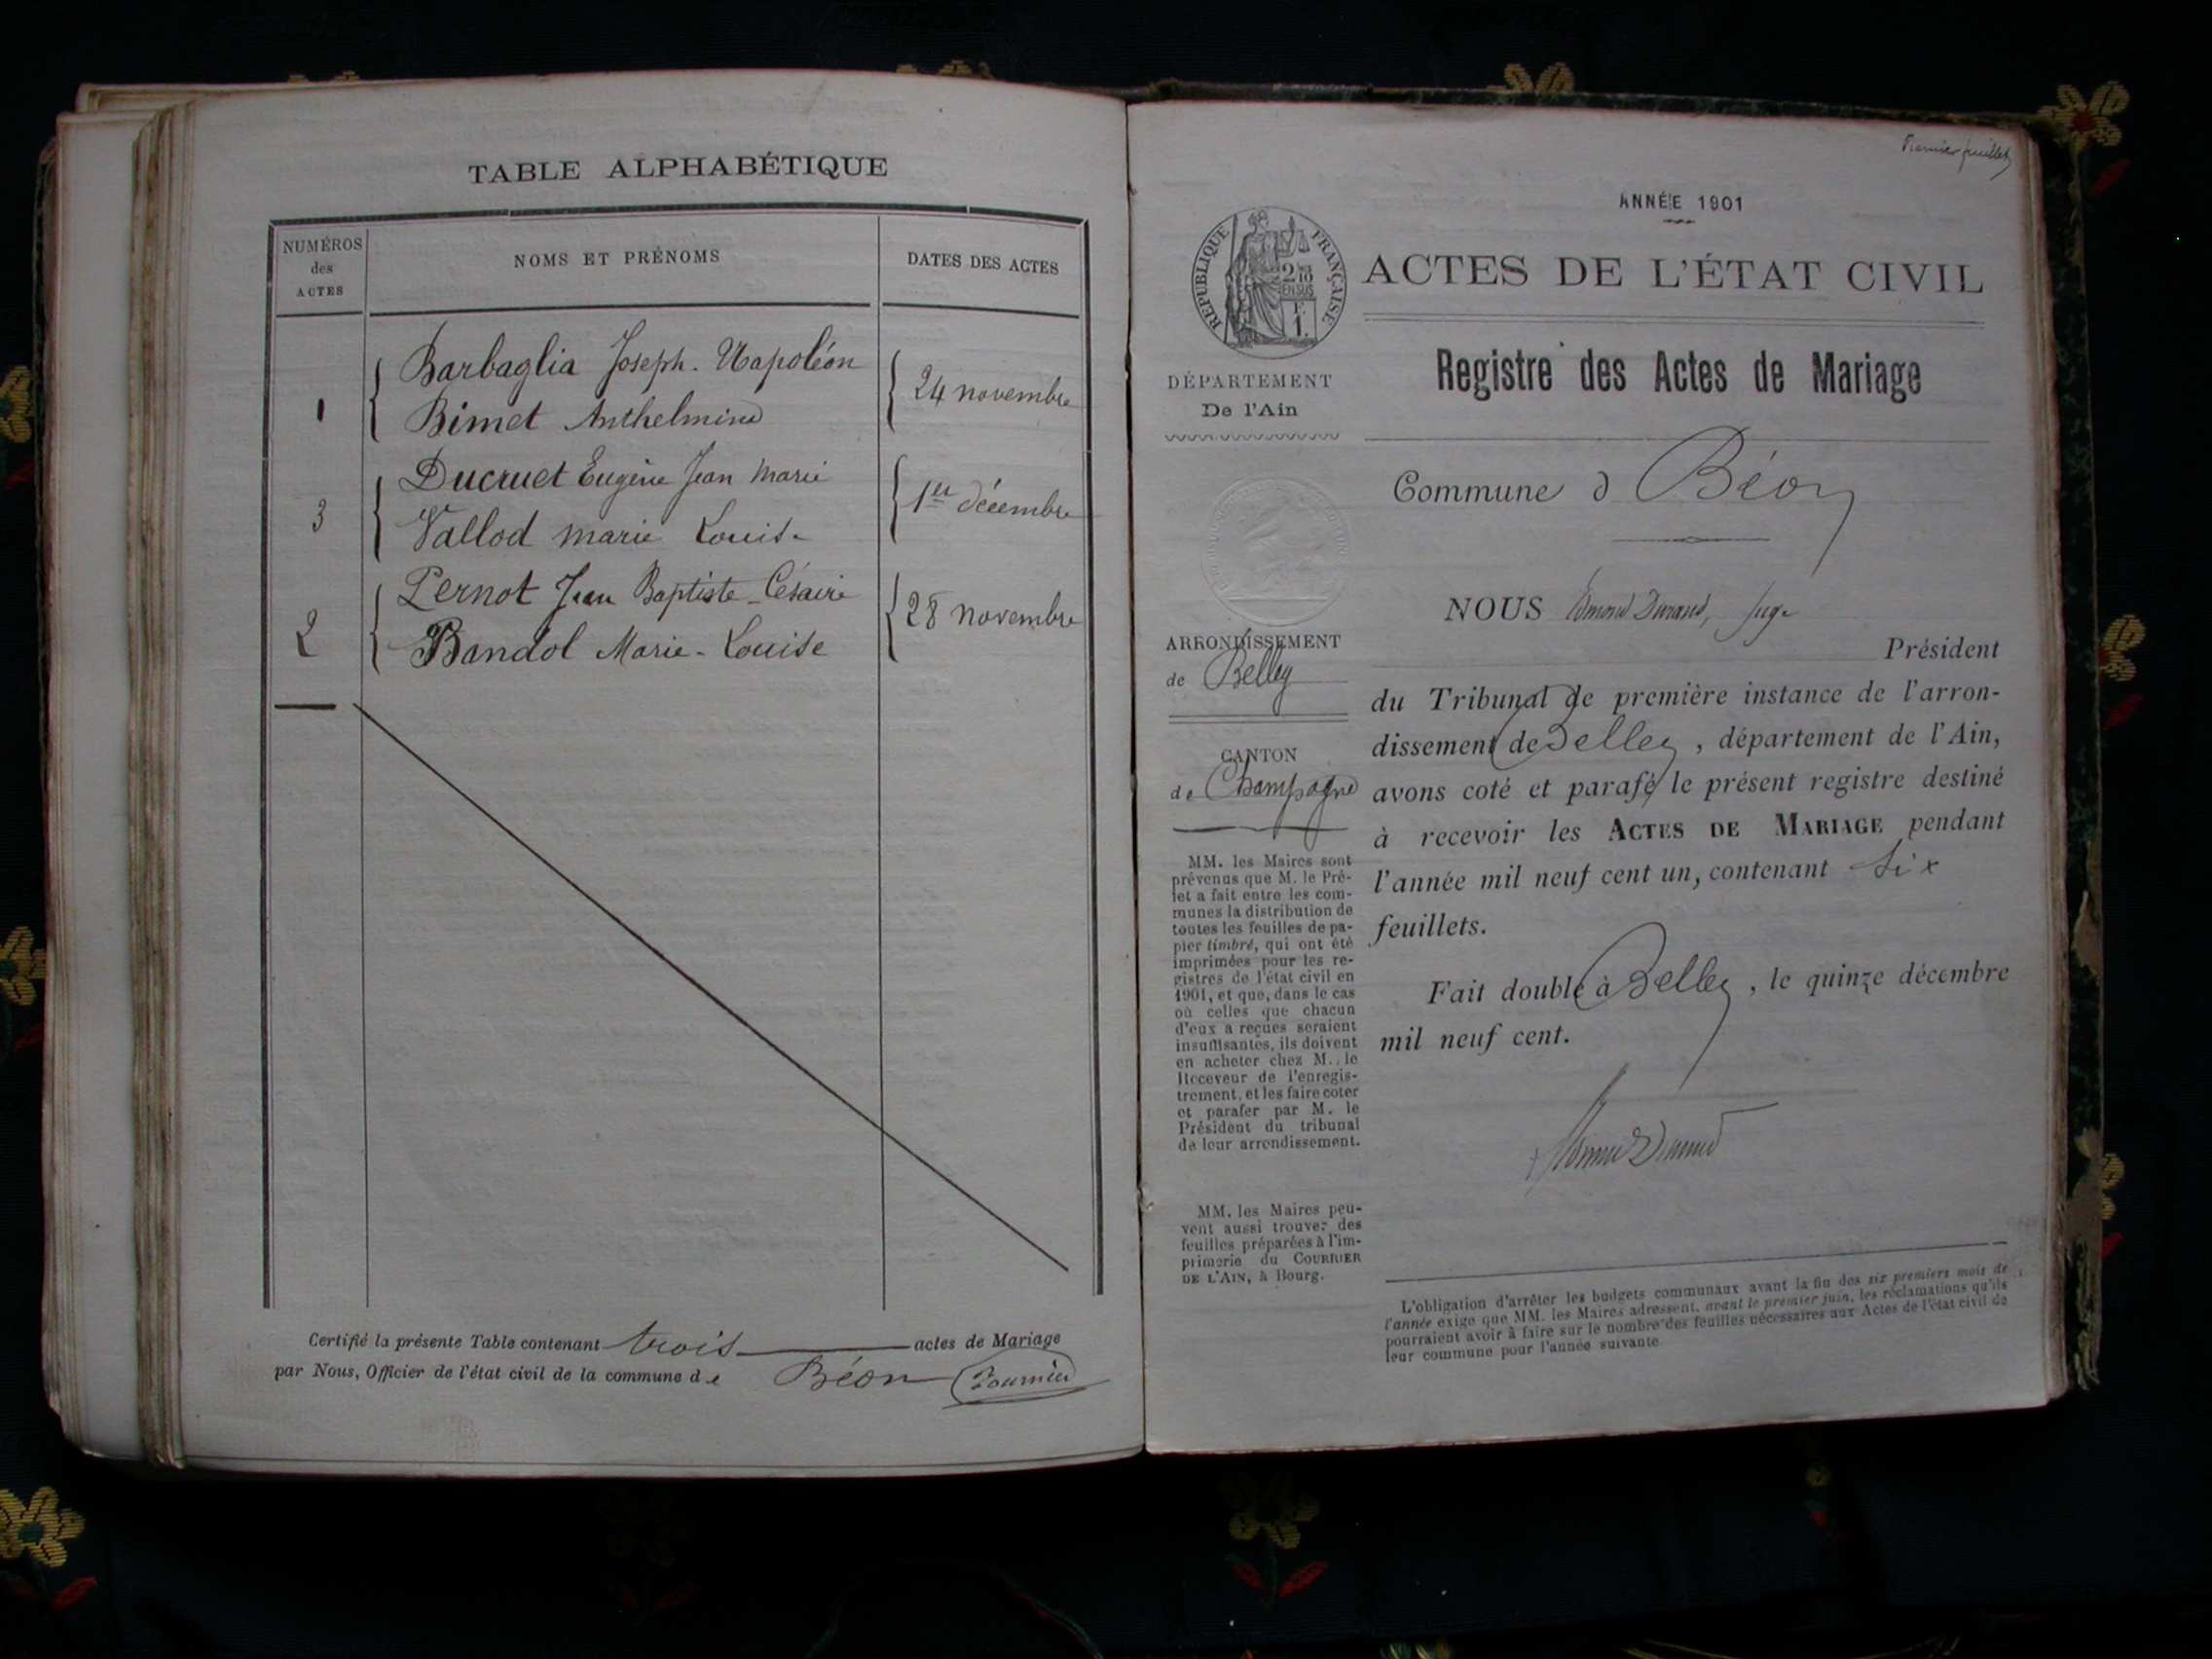 TABLE ALPHABÉTIQUE
NUMÉROS
des
ACTES
NOMS ET PRÉNOMS
DATES DES ACTES
Barbaglia Joseph. Napoléon
1
24 novembre
Bimet Anthelmine
Ducruet Eugène Jean Marie
3
1er décembre
Vallod Marie Louise
Pernot Jean Baptiste Césaire
2
28 novembre
Bandol Marie-Louise
Certifié la présente Table contenant trois actes de Mariage
par Nous, Officier de l'état civil de la commune de Béon Fournier
Premier feuillet
ANNÉE 1901
RÉPUBLIQUE FRANÇAISE
2 10
EN SUS
F.
1.
ACTES DE L'ÉTAT CIVIL
Registre des Actes de Mariage
DÉPARTEMENT
De l'Ain
Commune d Béon
NOUS Edmond Durand, Juge
Président
du Tribunal de première instance de l'arron-
dissement de Belley, département de l'Ain,
avons coté et parafé le présent registre destiné
à recevoir les ACTES DE MARIAGE pendant
l'année mil neuf cent un, contenant six
feuillets.
Fait double à Belley, le quinze décembre
mil neuf cent.
Edmond Durand
ARRONDISSEMENT
de Belley
CANTON
de Champagne
MM. les Maires sont
prévenus que M. le Pré-
fet a fait entre les com-
munes la distribution de
toutes les feuilles de pa-
pier timbré, qui ont été
imprimées pour les re-
gistres de l'état civil en
1901, et que, dans le cas
où celles que chacun
d'eux a reçues seraient
insuffisantes, ils doivent
en acheter chez M. le
Receveur de l'enregis-
trement, et les faire coter
et parafer par M. le
Président du tribunal
de leur arrondissement.
MM. les Maires peu-
vent aussi trouver des
feuilles préparées à l'im-
primerie du COURRIER
DE L'AIN, à Bourg.
L'obligation d'arrêter les budgets communaux avant la fin des six premiers mois de
l'année exige que MM. les Maires adressent, avant le premier juin, les réclamations qu'ils
pourraient avoir à faire sur le nombre des feuilles nécessaires aux Actes de l'état civil de
leur commune pour l'année suivante.